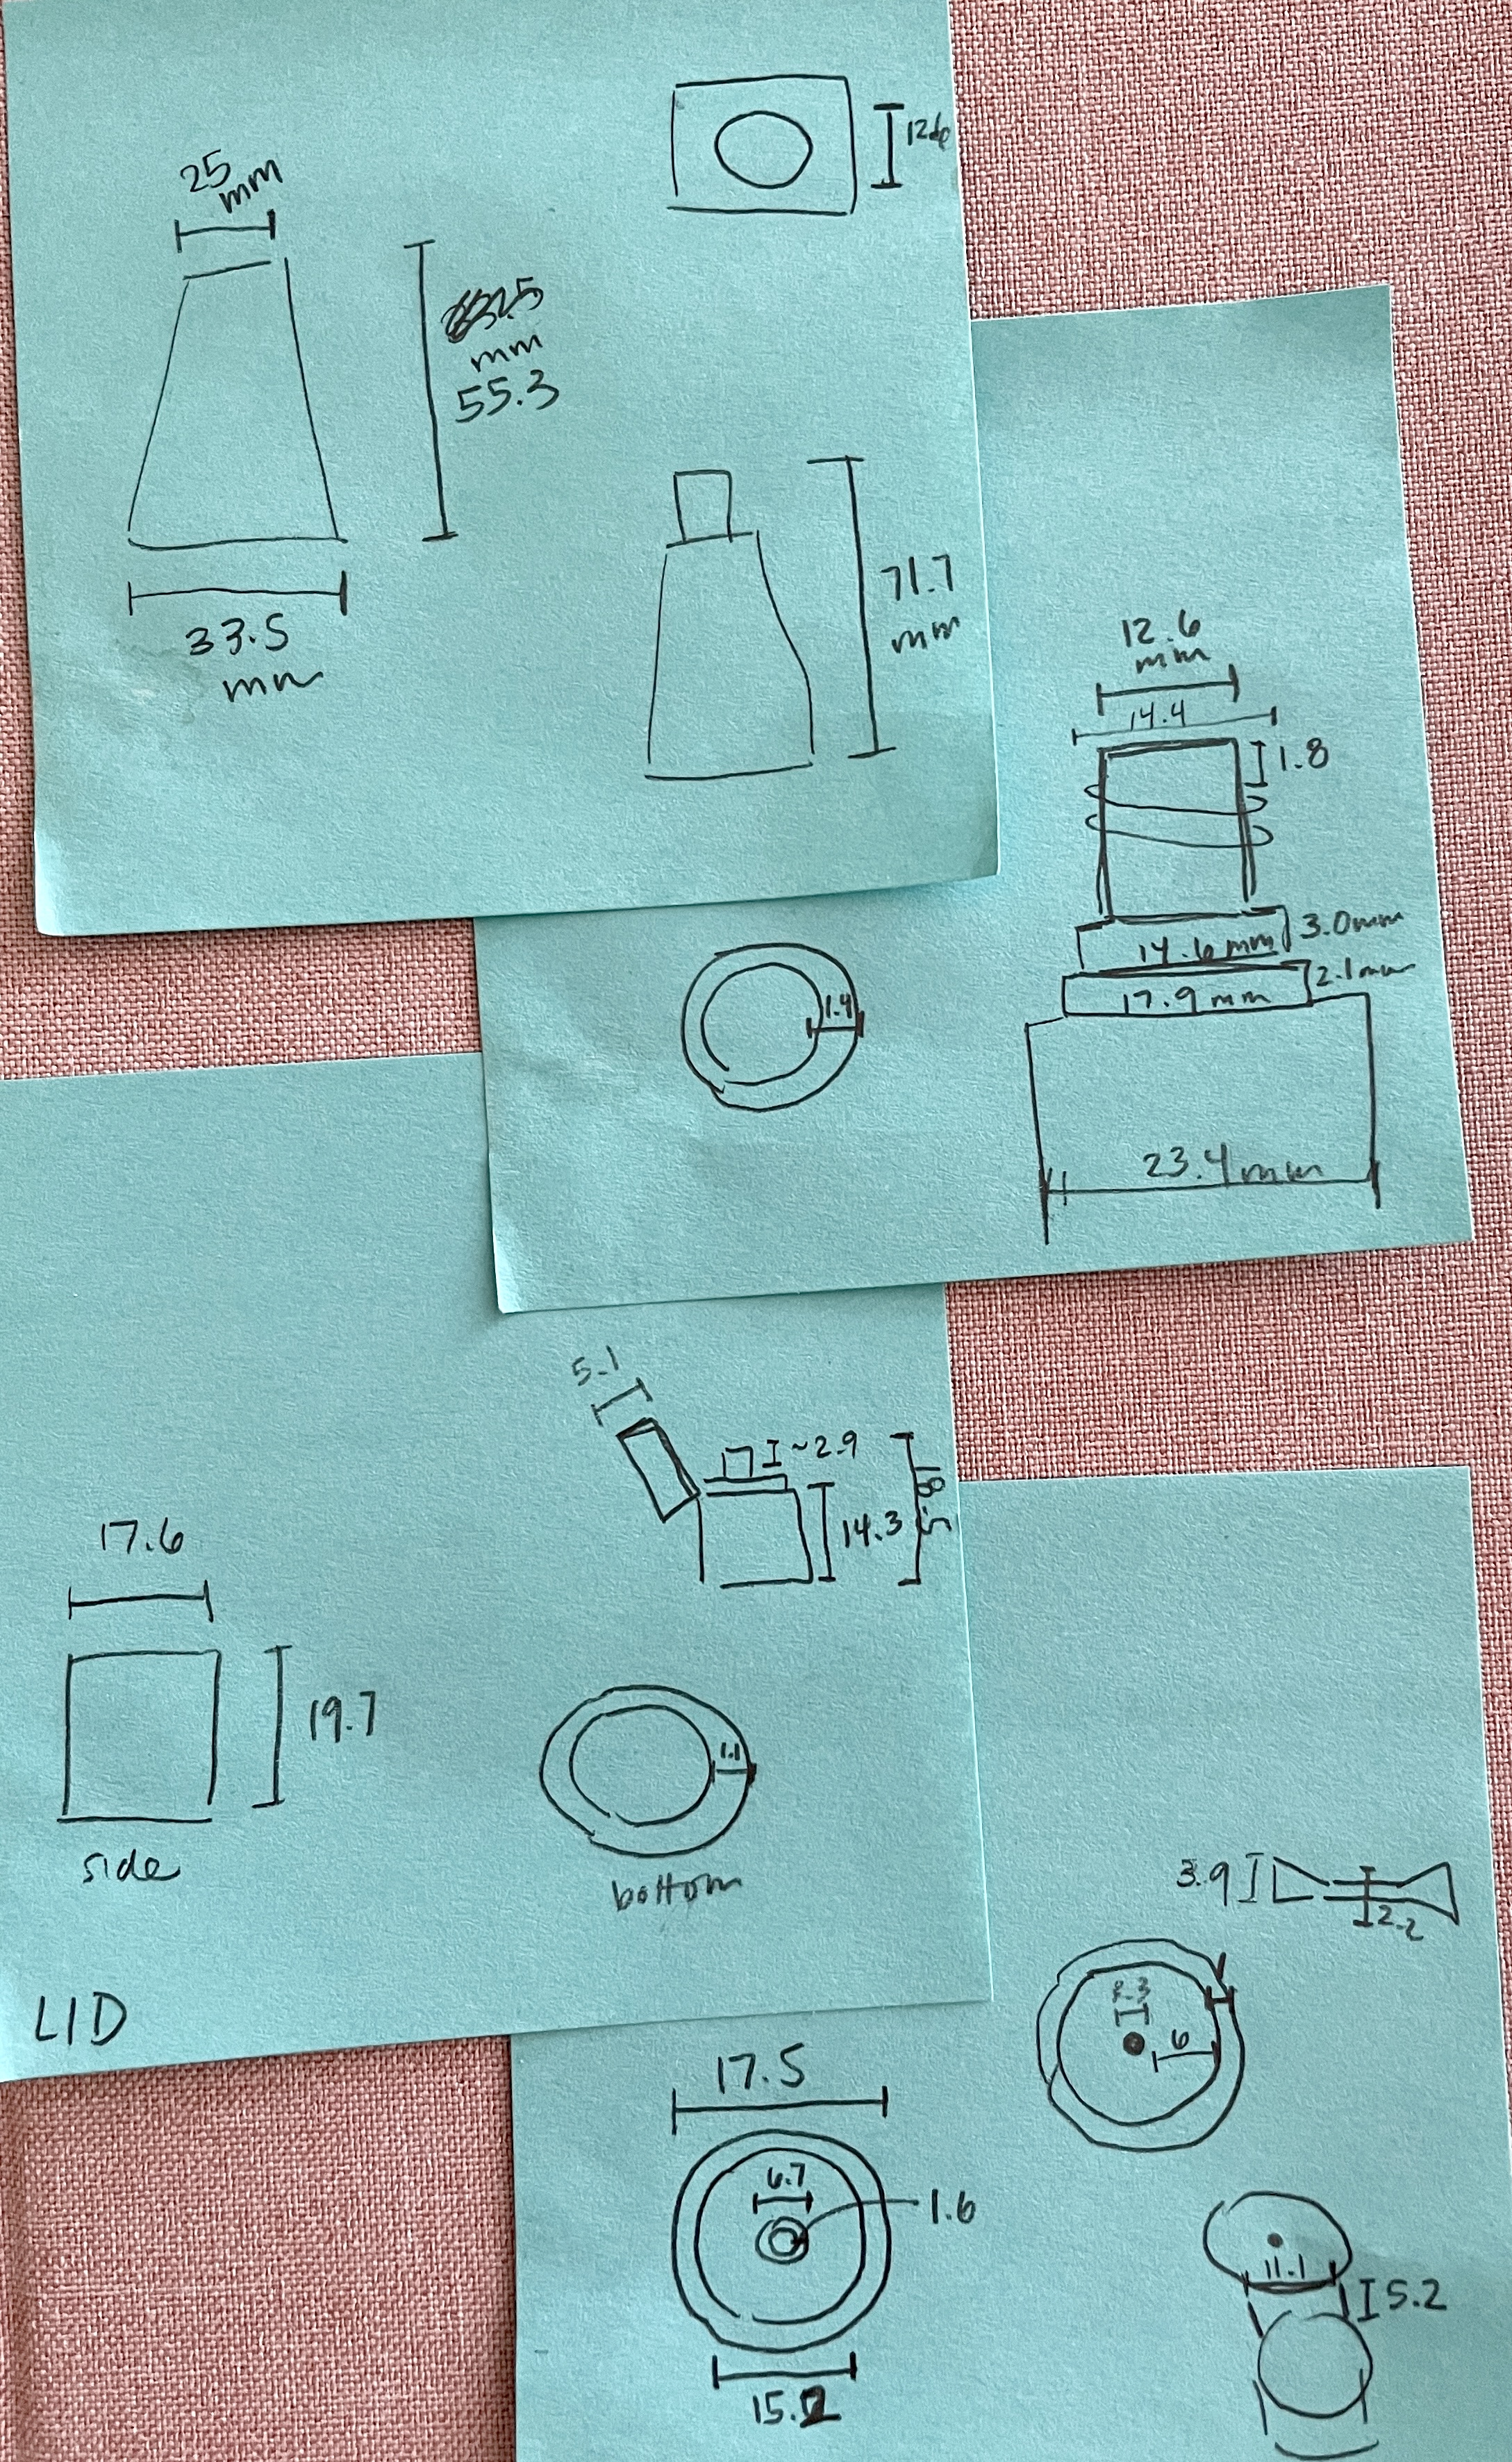 25
mm
mm
55.3
33.5
mm
71.7
mm
12.6
mm
14.4
1.8
3.0mm
14.6mm
2.1mm
17.9 mm
23.4mm
1.4
5.1
~2.9
14.3
17.6
19.7
side
1.1
bottom
LID
3.9
2.2
6
17.5
6.7
1.6
15.2
11.1
5.2